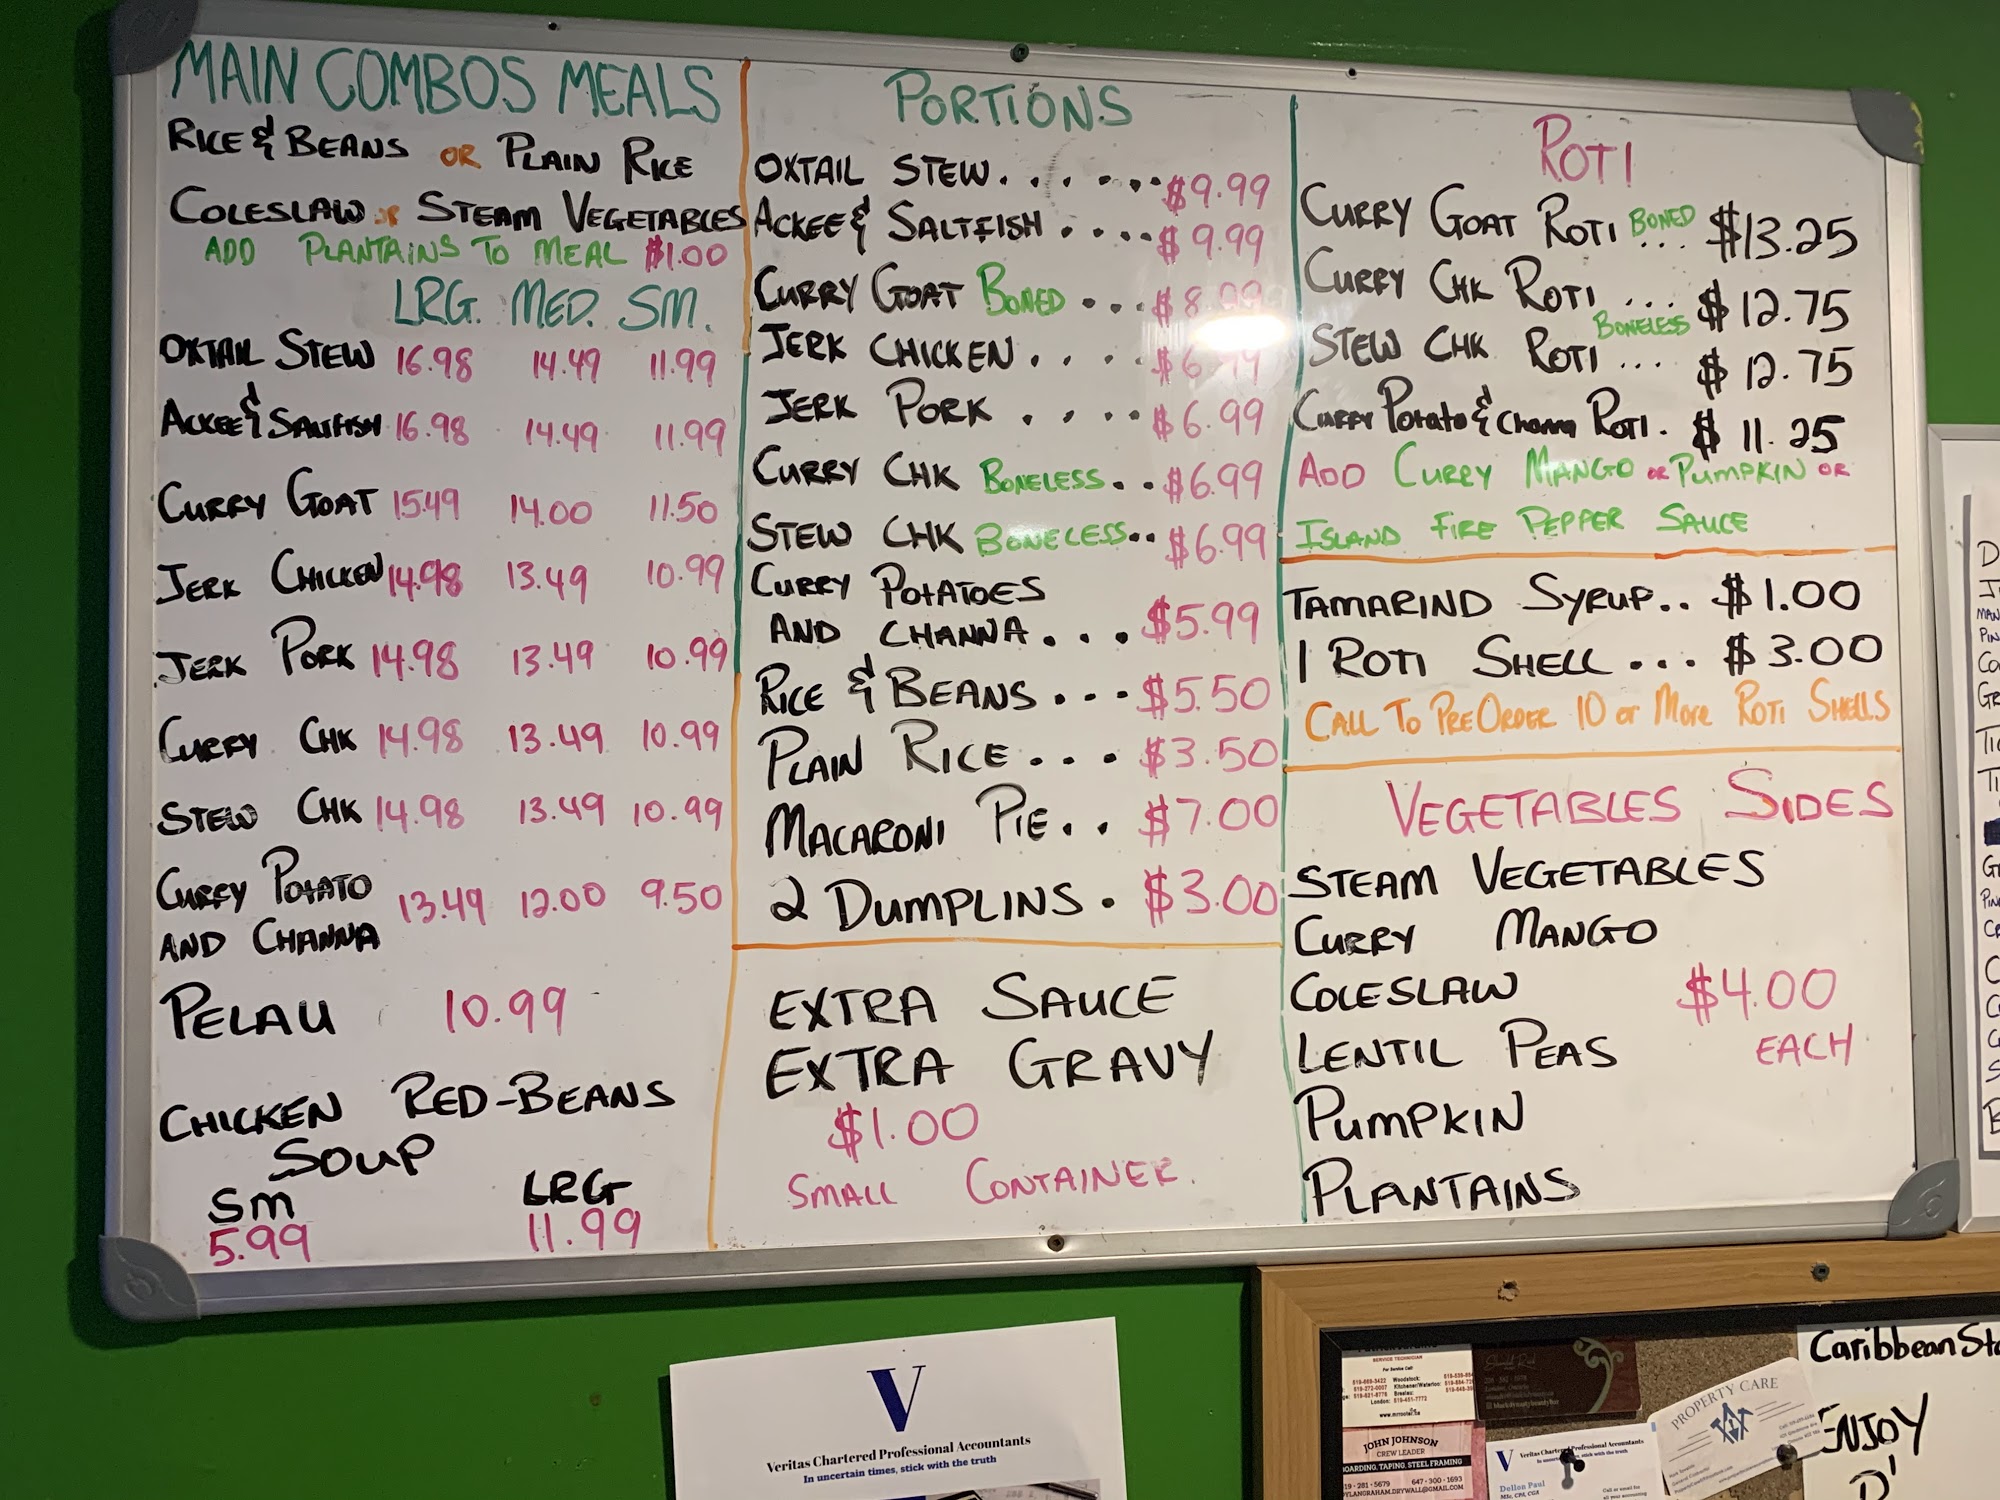 MAIN COMBOS MEALS
RICE & BEANS OR PLAIN RICE
COLESLAW or STEAM VEGETABLES
ADD PLANTAINS TO MEAL $1.00
LRG. MED. SM.
OXTAIL STEW 16.98 14.49 11.99
ACKEE & SALTFISH 16.98 14.49 11.99
CURRY GOAT 15.49 14.00 11.50
JERK CHICKEN 14.98 13.49 10.99
JERK PORK 14.98 13.49 10.99
CURRY CHK 14.98 13.49 10.99
STEW CHK 14.98 13.49 10.99
CURRY POTATO
AND CHANNA 13.49 12.00 9.50
PELAU 10.99
CHICKEN RED-BEANS
SOUP
SM LRG
5.99 11.99
PORTIONS
OXTAIL STEW....... $9.99
ACKEE & SALTFISH..... $9.99
CURRY GOAT BONED ... $8.99
JERK CHICKEN.... $6.99
JERK PORK .... $6.99
CURRY CHK BONELESS.. $6.99
STEW CHK BONELESS.. $6.99
CURRY POTATOES
AND CHANNA.... $5.99
RICE & BEANS... $5.50
PLAIN RICE... $3.50
MACARONI PIE.. $7.00
2 DUMPLINS. $3.00
EXTRA SAUCE
EXTRA GRAVY
$1.00
SMALL CONTAINER.
ROTI
CURRY GOAT ROTI BONED ... $13.25
CURRY CHK ROTI ... $12.75
BONELESS
STEW CHK ROTI .... $12.75
CURRY POTATO & CHANNA ROTI. $11.25
ADD CURRY MANGO OR PUMPKIN OR
ISLAND FIRE PEPPER SAUCE
TAMARIND SYRUP.. $1.00
1 ROTI SHELL ... $3.00
CALL TO PREORDER 10 or More ROTI SHELLS
VEGETABLES SIDES
STEAM VEGETABLES
CURRY MANGO
COLESLAW $4.00
LENTIL PEAS EACH
PUMPKIN
PLANTAINS
V
Veritas Chartered Professional Accountants
In uncertain times, stick with the truth
SERVICE TECHNICIAN
JOHN JOHNSON
CREW LEADER
BOARDING, TAPING, STEEL FRAMING
647 • 300 • 1693
V Veritas Chartered Professional Accountants
Dellon Paul
PROPERTY CARE
Caribbean
ENJOY
D'